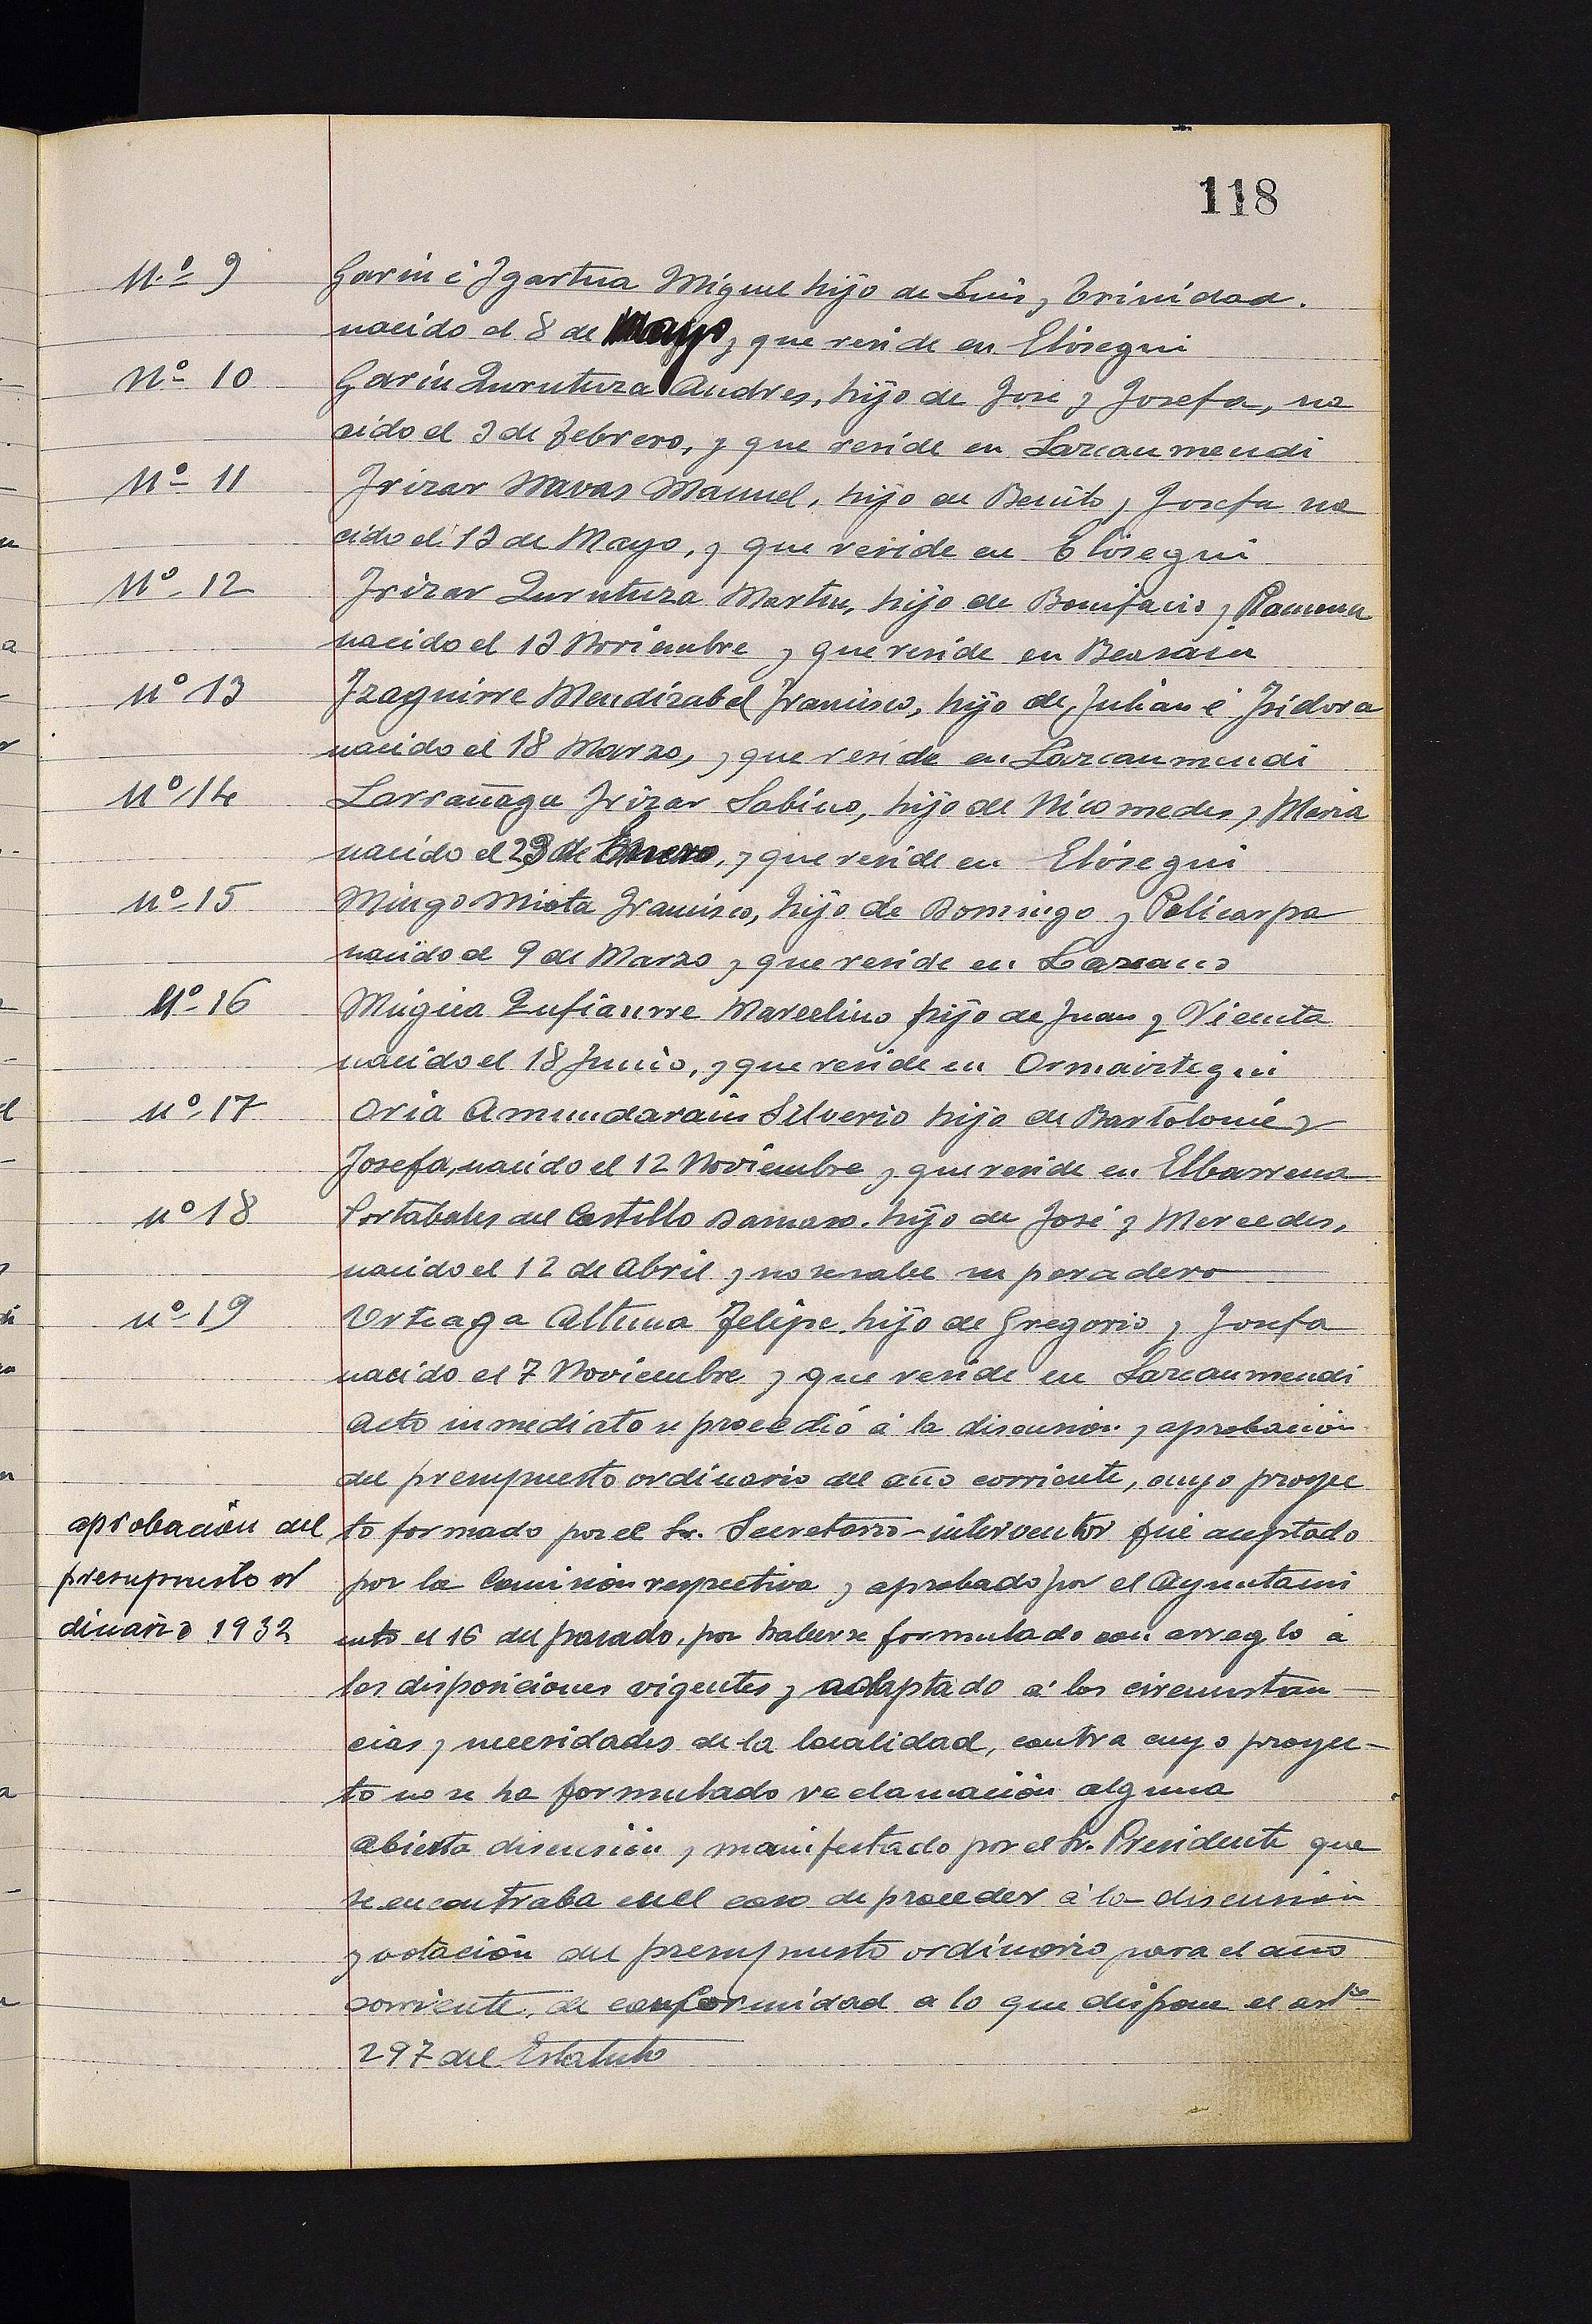 118
N.º 9 Garin é Igartua Miguel hijo de Luis y Trinidad.
nacido el 8 de Mayo, y que reside en Elósegui
Nº 10 Garin Zurutuza Andres, hijo de José y Josefa, na
cido el 3 de Febrero, y que reside en Lazcaumendi
Nº 11 Irizar Navas Manuel, hijo de Benito y Josefa na
cido el 13 de Mayo, y que reside en Elósegui
Nº 12 Irizar Zurutuza Martin, hijo de Bonifacio y Ramona
nacido el 13 Noviembre y que reside en Beasain
nº 13 Izaguirre Mendizabal Francisco, hijo de Julian é Isidora
nacido el 18 Marzo, y que reside en Lazcaumendi
Nº 14 Larrañaga Irizar Sabino, hijo de Nicomedes y Maria
nacido el 29 de Enero, y que reside en Elósegui
nº 15 Mingo Miota Francisco, hijo de Domingo y Policarpa
nacido el 9 de Marzo y que reside en Lazcano
Nº 16 Múgica Zufiaurre Marcelino hijo de Juan y Vicenta
nacido el 18 Junio, y que reside en Ormaiztegui
nº 17 Oria Amundarain Silverio hijo de Bartolomé y
Josefa, nacido el 12 Noviembre y que reside en Elbarrena
nº 18 Portabales del Castillo Damaso. hijo de José y Mercedes,
nacido el 12 de Abril y no se sabe su paradero
nº 19 Urteaga Altuna Felipe hijo de Gregorio y Josefa
nacido el 7 Noviembre y que reside en Lazcaumendi
Acto inmediato se procedió á la discusion y aprobación
del presupuesto ordinario del año corriente, cuyo proyec
aprobación del to formado por el Sr. Secretario-interventor fué aceptado
presupuesto or por la Comision respectiva y aprobado por el Ayuntami
dinario 1932 ento el 16 del pasado, por haberse formulado con arreglo á
las disposiciones vigentes y adaptado á las circunstan-
cias y necesidades de la localidad, contra cuyo proyec-
to no se ha formulado reclamación alguna
Abierta discusión y manifestado por el Sr. Presidente que
se encontraba en el caso de proceder á la discusión
y votación del presupuesto ordinario para el año
corriente, de conformidad a lo que dispone el artº
297 del Estatuto